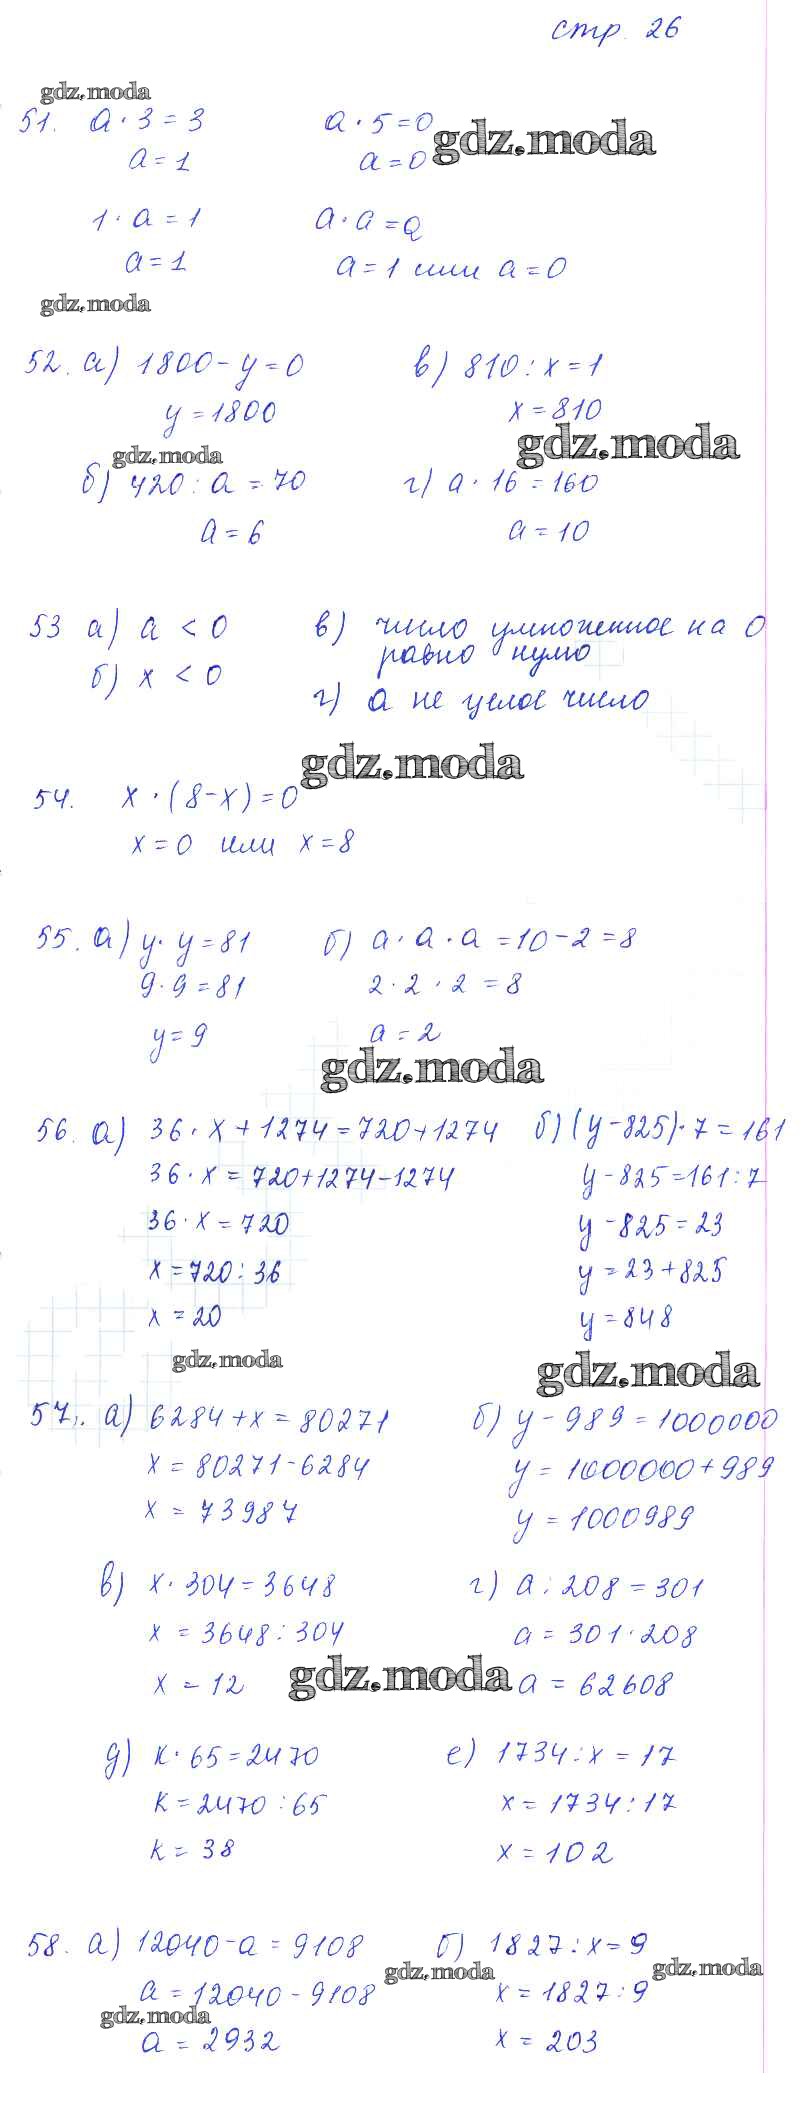 стр. 26
gdz.moda
51. a · 3 = 3 a · 5 = 0
gdz.moda
a = 1 a = 0
1 · a = 1 a · a = a
a = 1 a = 1 или a = 0
gdz.moda
52. а) 1800 - y = 0 в) 810 : x = 1
y = 1800 x = 810
gdz.moda gdz.moda
б) 420 : a = 70 г) a · 16 = 160
a = 6 a = 10
53 а) a < 0 в) число умноженное на 0
равно нулю
б) x < 0
г) a не целое число
gdz.moda
54. x · (8 - x) = 0
x = 0 или x = 8
55. а) y · y = 81 б) a · a · a = 10 - 2 = 8
9 · 9 = 81 2 · 2 · 2 = 8
y = 9 a = 2
gdz.moda
56. а) 36 · x + 1274 = 720 + 1274 б) (y - 825) · 7 = 161
36 · x = 720 + 1274 - 1274 y - 825 = 161 : 7
36 · x = 720 y - 825 = 23
x = 720 : 36 y = 23 + 825
x = 20 y = 848
gdz.moda gdz.moda
57. а) 6284 + x = 80271 б) y - 989 = 1000000
x = 80271 - 6284 y = 1000000 + 989
x = 73987 y = 1000989
в) x · 304 = 3648 г) a : 208 = 301
x = 3648 : 304 a = 301 · 208
x = 12 gdz.moda a = 62608
д) k · 65 = 2470 е) 1734 : x = 17
k = 2470 : 65 x = 1734 : 17
k = 38 x = 102
58. а) 12040 - a = 9108 б) 1827 : x = 9
gdz.moda gdz.moda
a = 12040 - 9108 x = 1827 : 9
gdz.moda
a = 2932 x = 203